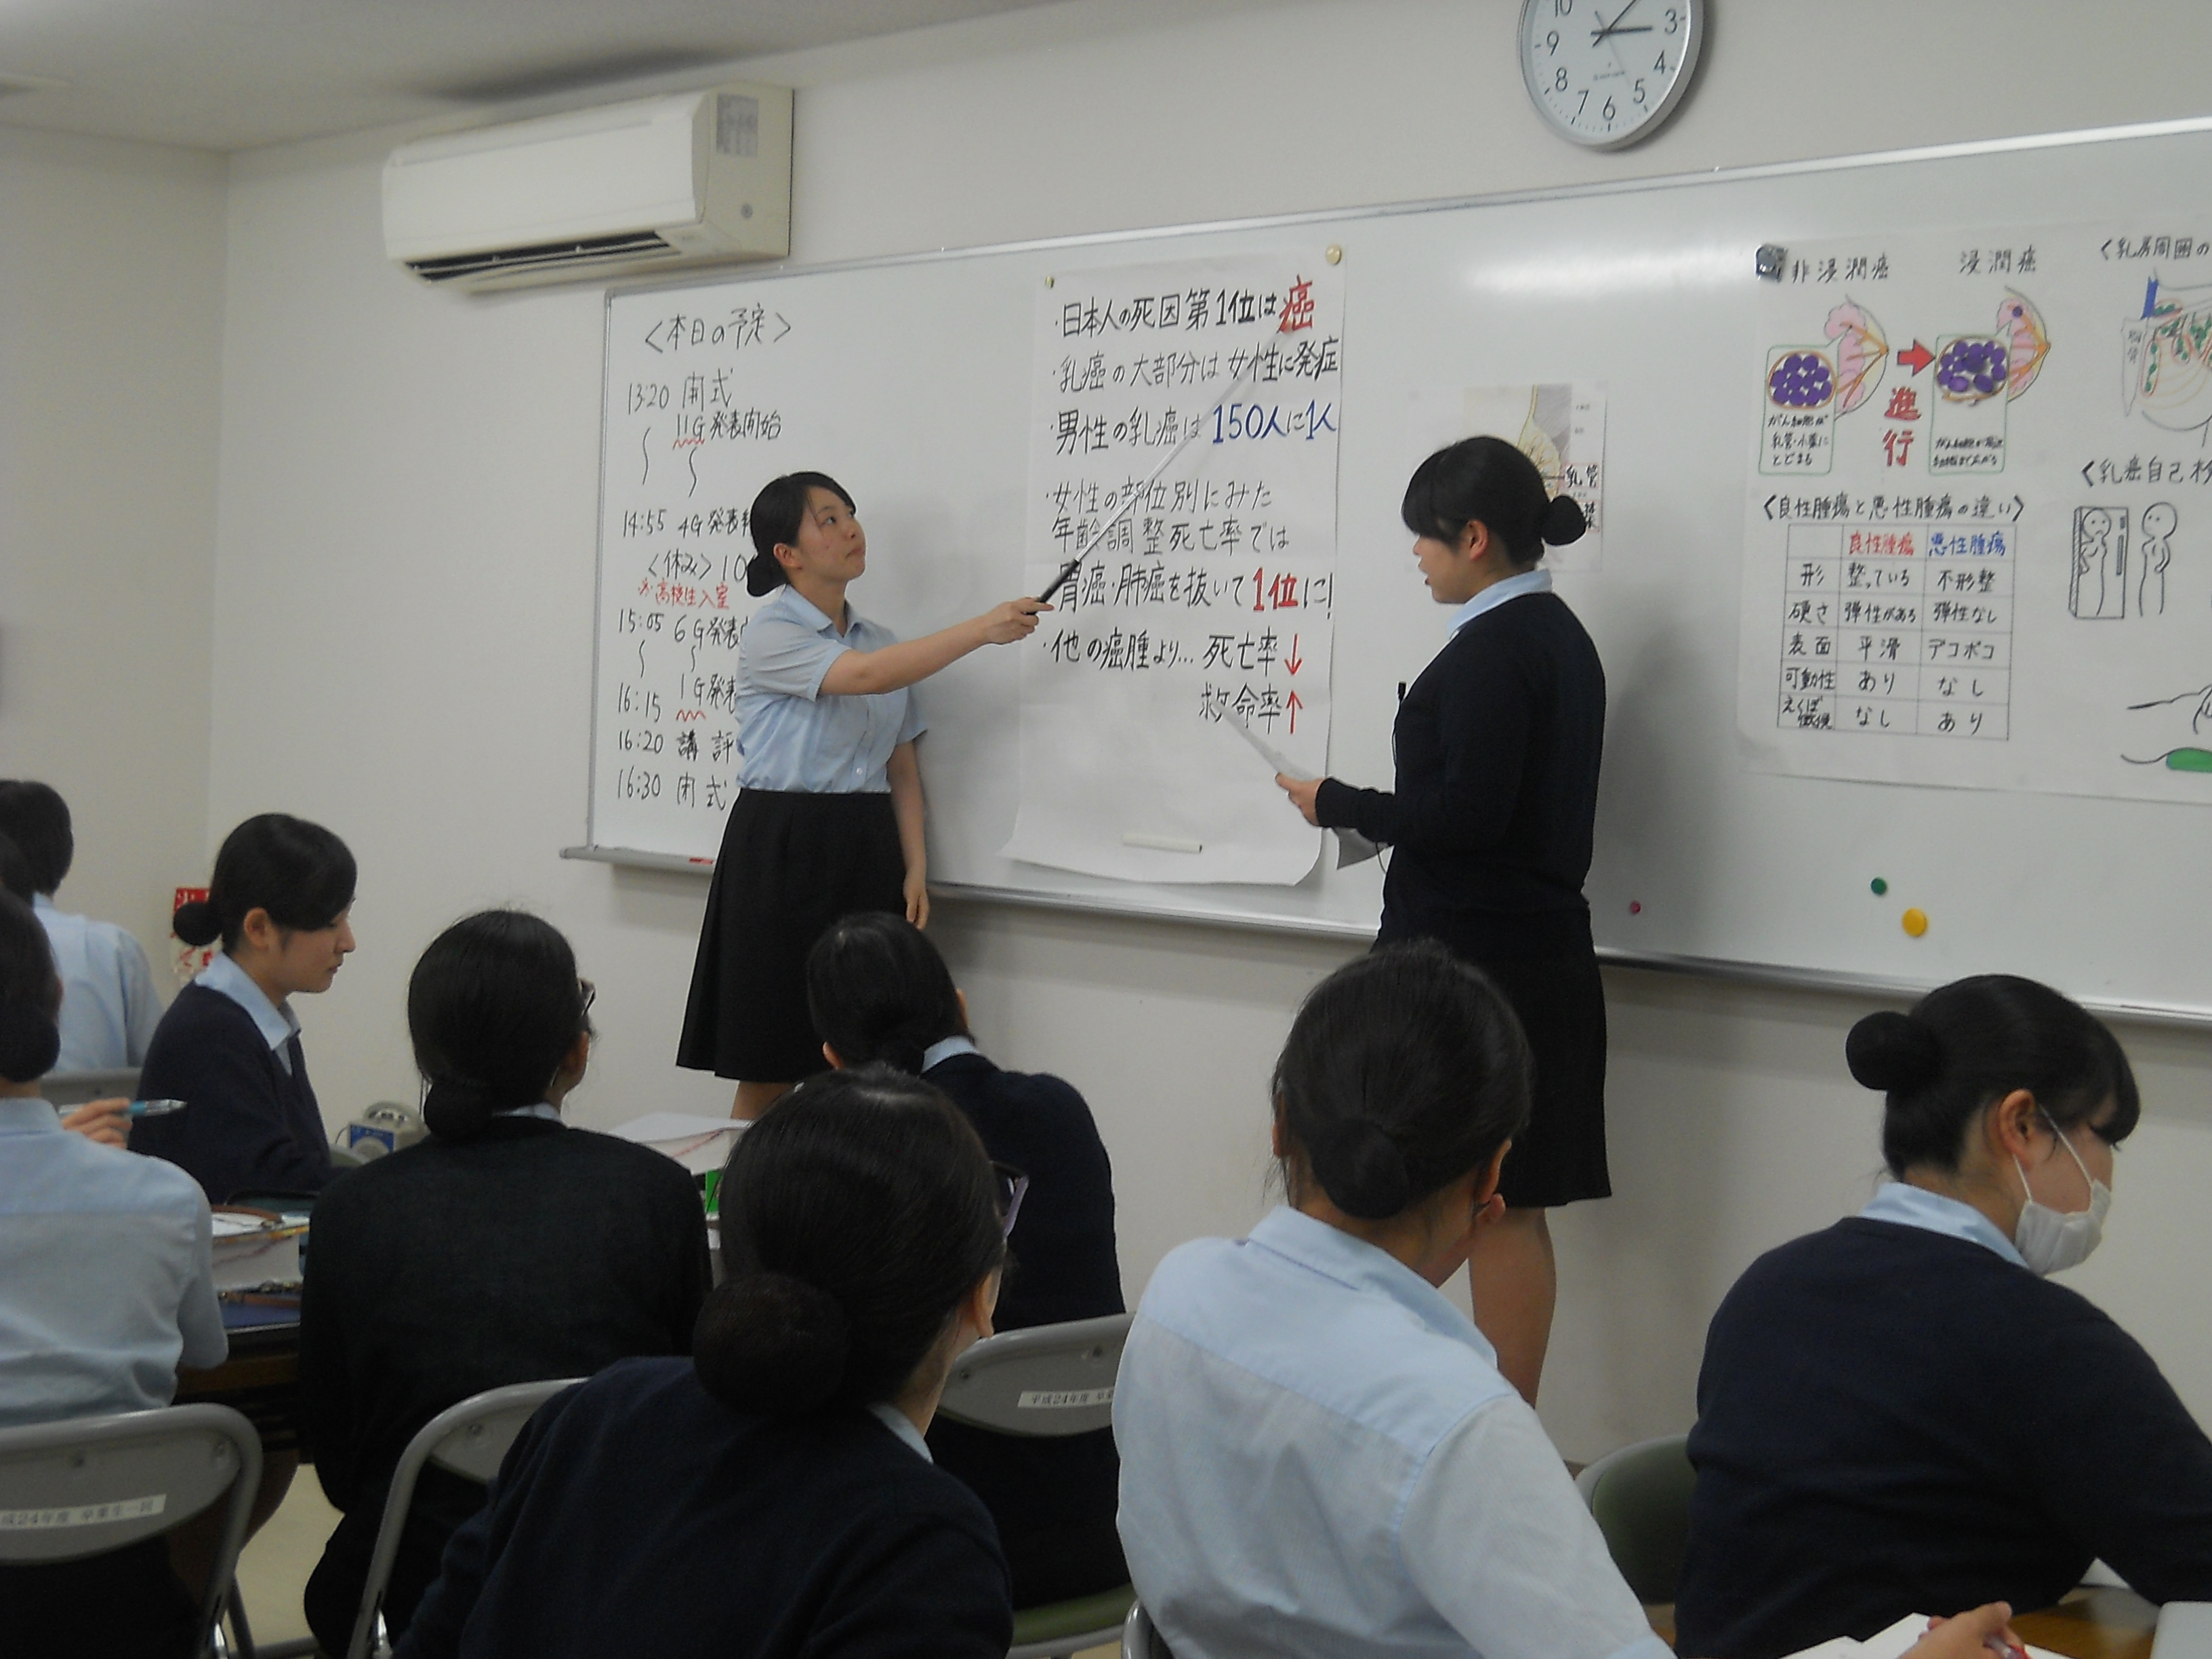 <本日の予定>
13:20 開式
11G 発表開始
14:55 4G 発表
<休み> 10
※高校生入室
15:05 6G 発表
16:15 1G 発表
16:20 講評
16:30 閉式
・日本人の死因第1位は癌
・乳癌の大部分は女性に発症
・男性の乳癌は150人に1人
・女性の部位別にみた
年齢調整死亡率では
胃癌・肺癌を抜いて1位に!
・他の癌腫より… 死亡率↓
救命率↑
乳管
葉
非浸潤癌 浸潤癌
進行
がん細胞が
乳管・小葉に
とどまる
<良性腫瘍と悪性腫瘍の違い>
良性腫瘍 悪性腫瘍
形 整っている 不形整
硬さ 弾性がある 弾性なし
表面 平滑 デコボコ
可動性 あり なし
えくぼ なし あり
<乳房周囲の
<乳癌自己検
10 3
9 4
8 7 6 5
平成24年度 卒
成24年度 卒業生一同